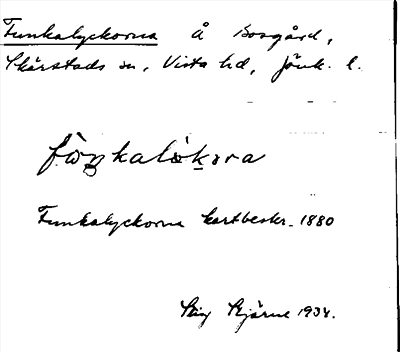 Funkalyckorna Å Bosgård,
Skärstads sn, Vista hd, Jönk. l.
fòŋkalökɔra
Funkalyckorna kartbeskr. 1880
Stig Bjärne 1934.